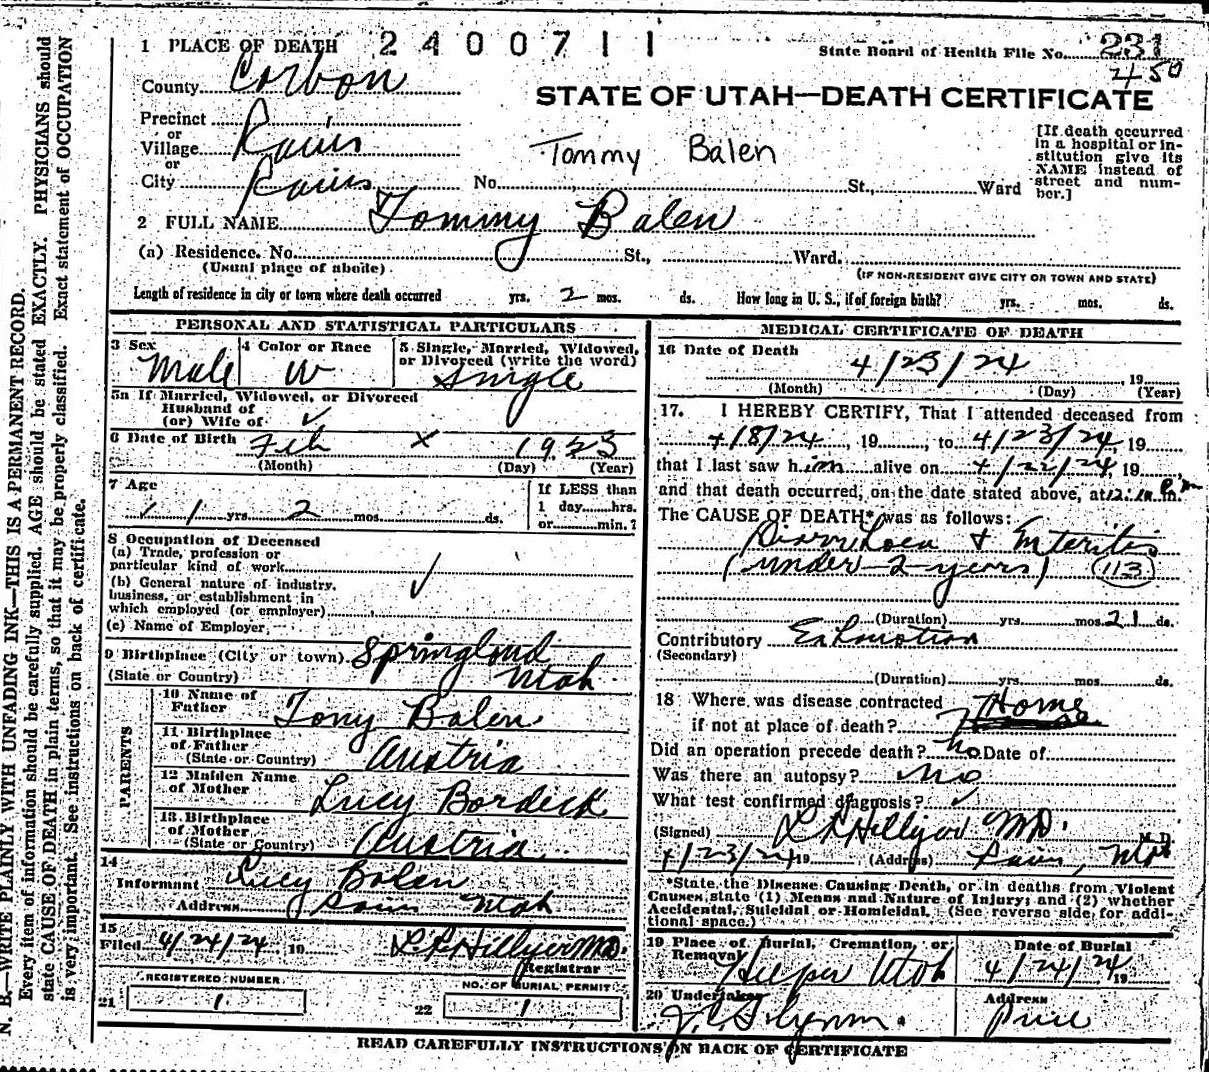 N. B.—WRITE PLAINLY WITH UNFADING INK—THIS IS A PERMANENT RECORD.
Every item of information should be carefully supplied. AGE should be stated EXACTLY. PHYSICIANS should
state CAUSE OF DEATH in plain terms, so that it may be properly classified. Exact statement of OCCUPATION
is very important. See instructions on back of certificate.
1 PLACE OF DEATH 2400711
State Board of Health File No. 231
450
County Carbon
STATE OF UTAH—DEATH CERTIFICATE
Precinct
or
Village Rains
or
City Rains
Tommy Balen
No. St., Ward
[If death occurred
in a hospital or in-
stitution give its
NAME instead of
street and num-
ber.]
2 FULL NAME Tommy Balen
(a) Residence. No. St., Ward.
(Usual place of abode) (IF NON-RESIDENT GIVE CITY OR TOWN AND STATE)
Length of residence in city or town where death occurred yrs. 2 mos. ds. How long in U. S., if of foreign birth? yrs. mos. ds.
PERSONAL AND STATISTICAL PARTICULARS
3 Sex Male
4 Color or Race W
5 Single, Married, Widowed,
or Divorced (write the word)
Single
5a If Married, Widowed, or Divorced
Husband of
(or) Wife of ✓
6 Date of Birth Feb x 1923
(Month) (Day) (Year)
7 Age
1 yrs. 2 mos. ds.
If LESS than
1 day hrs.
or min.?
8 Occupation of Deceased
(a) Trade, profession or
particular kind of work
(b) General nature of industry,
business, or establishment in
which employed (or employer) ✓
(c) Name of Employer
9 Birthplace (City or town) Springlond
(State or Country) Utah
PARENTS
10 Name of
Father Tony Balen
11 Birthplace
of Father
(State or Country) Austria
12 Maiden Name
of Mother Lucy Bordeck
13 Birthplace
of Mother
(State or Country) Austria
14
Informant Lucy Balen
Address Rains Utah
15
Filed 4/24/24 19 L R Hillyer MD.
Registrar
REGISTERED NUMBER
21 1
NO. OF BURIAL PERMIT
22 1
MEDICAL CERTIFICATE OF DEATH
16 Date of Death
4/23/24, 19
(Month) (Day) (Year)
17. I HEREBY CERTIFY, That I attended deceased from
4/8/24, 19, to 4/23/24, 19
that I last saw him alive on 4/22/24, 19
and that death occurred, on the date stated above, at 12:10 P m.
The CAUSE OF DEATH* was as follows:
Diarrhoea & Enteritis
(under 2 years) (113)
(Duration) yrs. mos. 21 ds.
Contributory Exhaustion
(Secondary)
(Duration) yrs. mos. ds.
18 Where was disease contracted
if not at place of death? Home
Did an operation precede death? No Date of
Was there an autopsy? No
What test confirmed diagnosis? ✓
(Signed) L R Hillyer MD. M.D.
4/23/24 19 (Address) Rains, Utah
*State the Disease Causing Death, or in deaths from Violent
Causes, state (1) Means and Nature of Injury; and (2) whether
Accidental, Suicidal or Homicidal. (See reverse side for addi-
tional space.)
19 Place of Burial, Cremation, or
Removal
Helper Utah
Date of Burial
4/24/24 19
20 Undertaker
Address
Price
READ CAREFULLY INSTRUCTIONS ON BACK OF CERTIFICATE